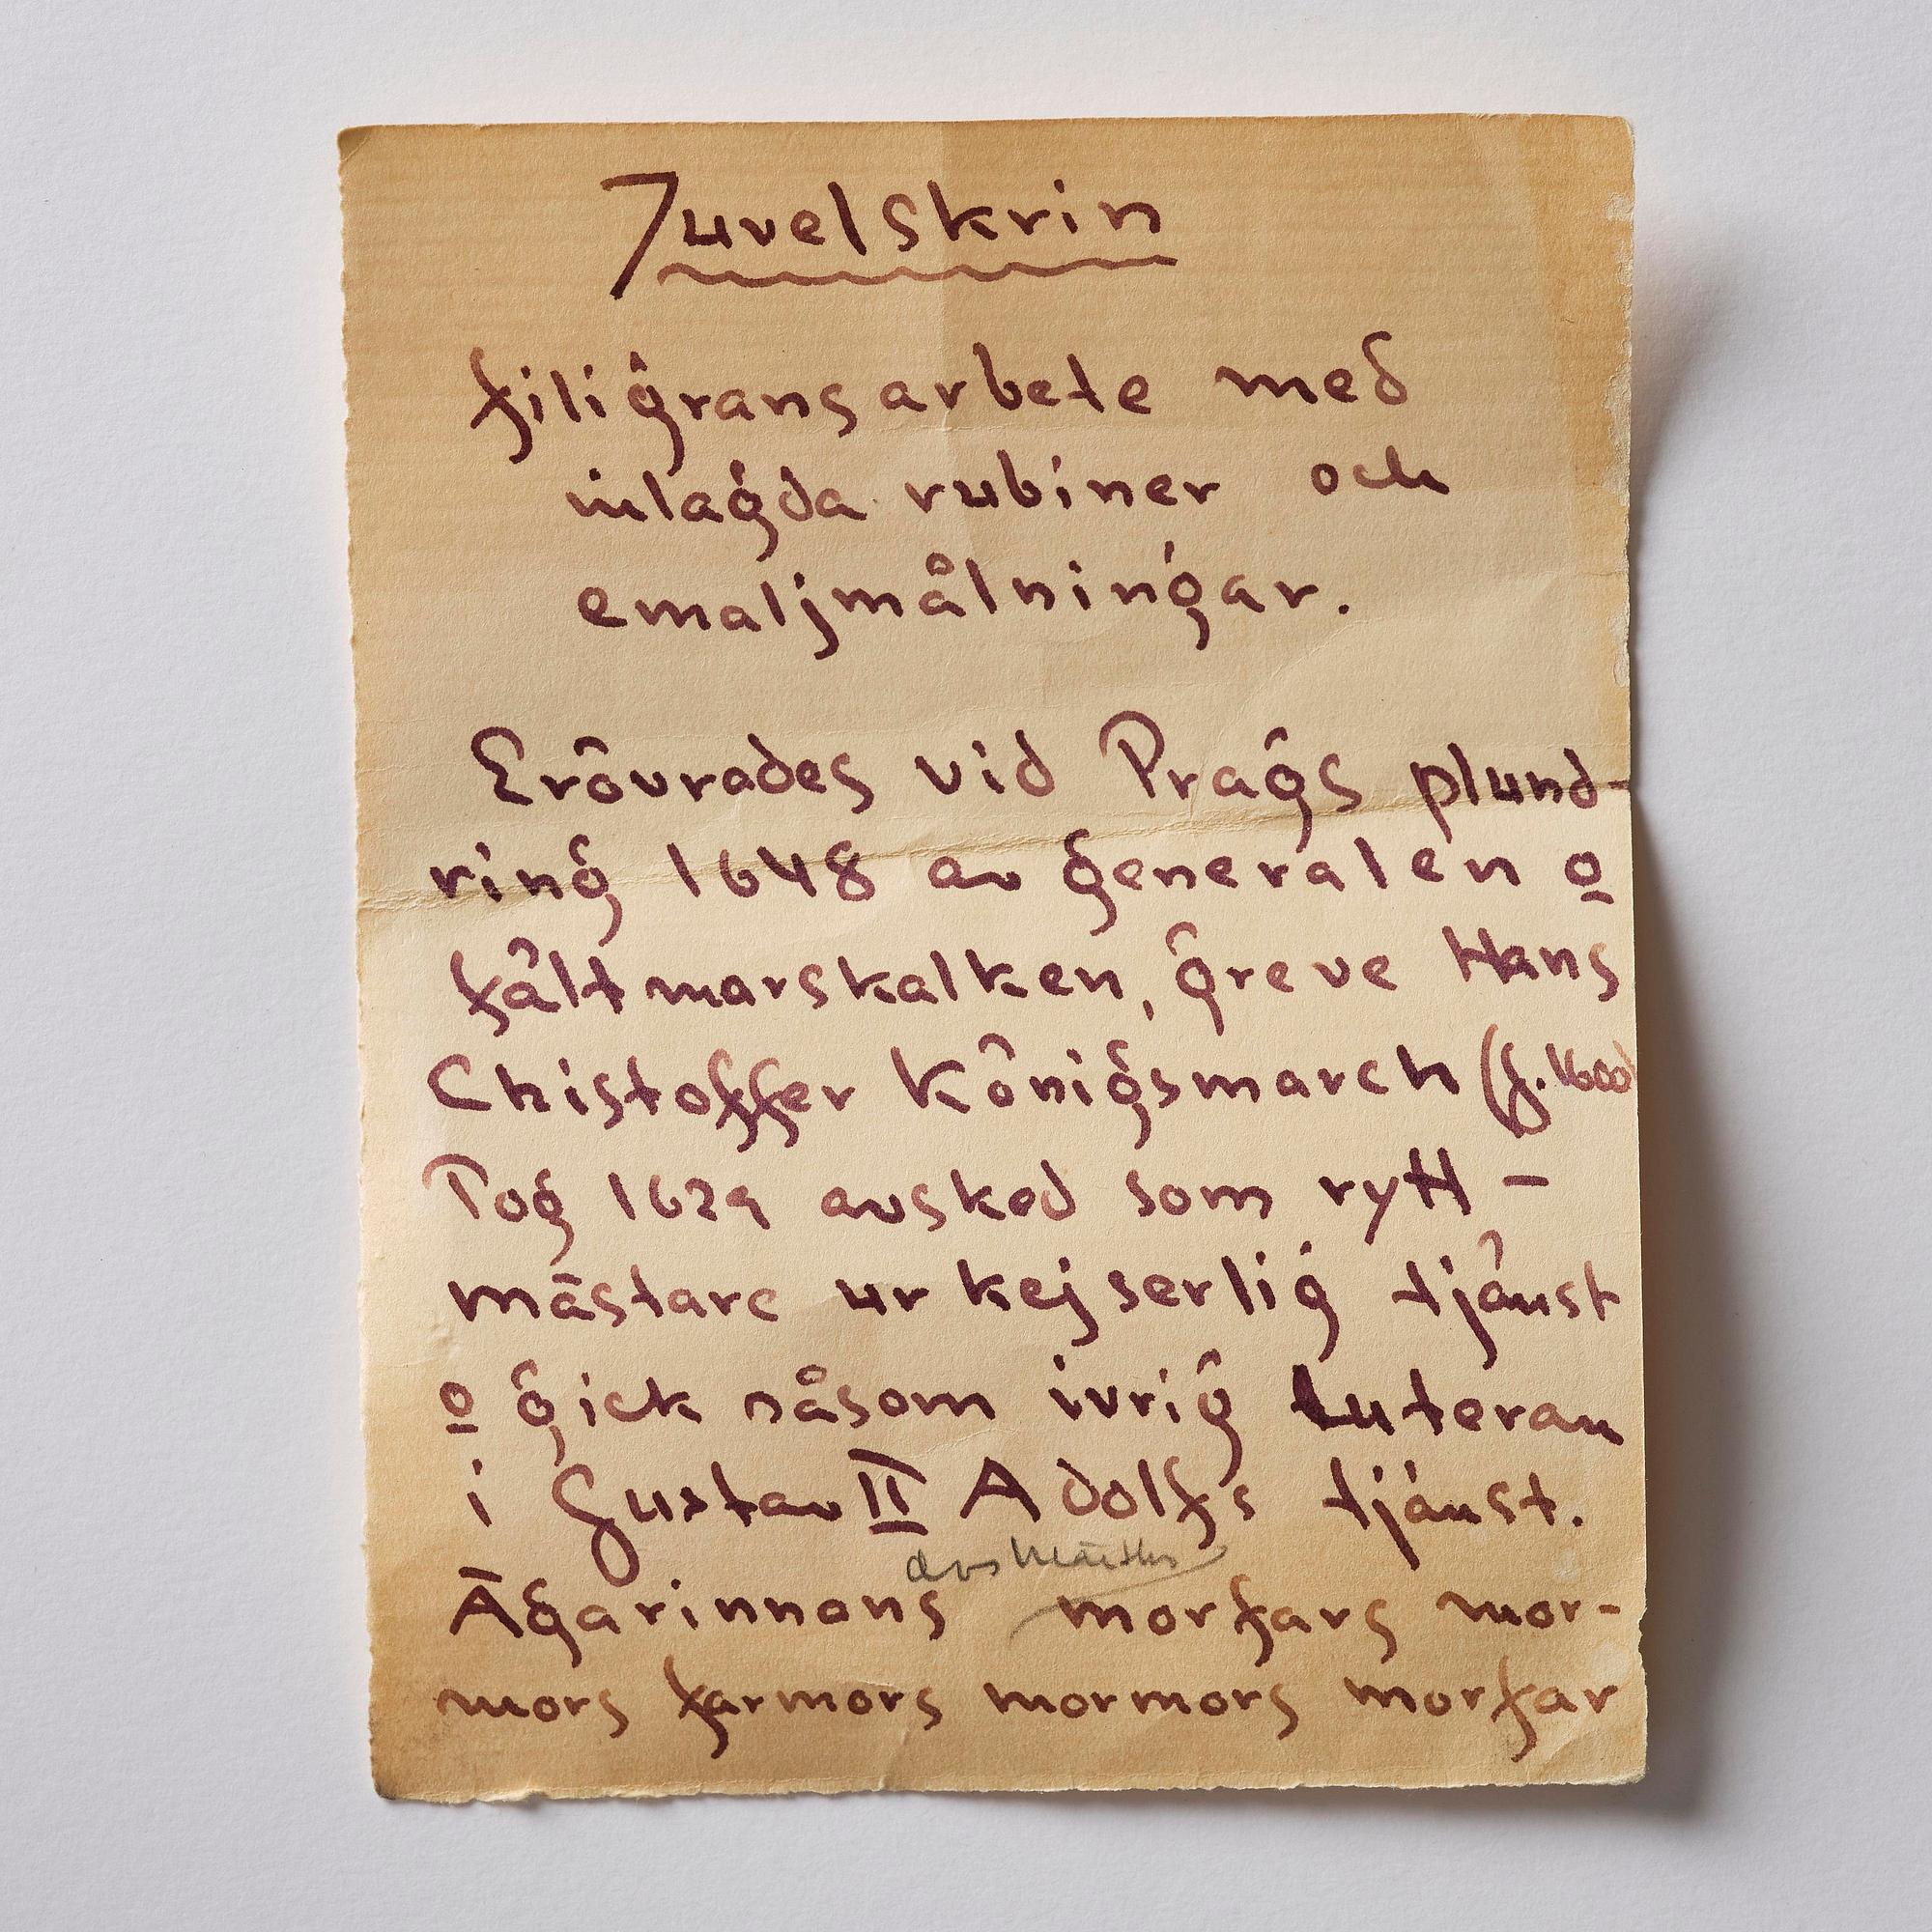 Juvelskrin
filigransarbete med
inlagda rubiner och
emaljmålningar.
Erövrades vid Prags plund-
ring 1648 av generalen o
fältmarskalken, greve Hans
Chistoffer Königsmarch (f. 1600)
Tog 1629 avsked som rytt-
mästare ur kejserlig tjänst
o gick såsom ivrig Luteran
i Gustav II Adolfs tjänst.
dvs
Ägarinnans morfars mor-
mors farmors mormors morfar